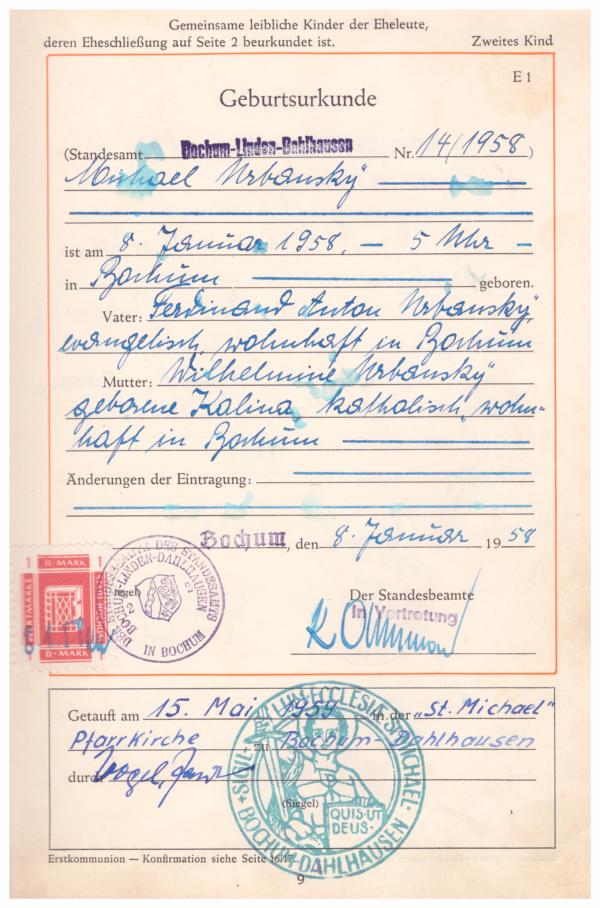 Gemeinsame leibliche Kinder der Eheleute,
deren Eheschließung auf Seite 2 beurkundet ist. Zweites Kind
E 1
Geburtsurkunde
(Standesamt Bochum-Linden-Dahlhausen Nr. 14/1958)
Michael Urbansky
ist am 8. Januar 1958, – 5 Uhr –
in Bochum geboren.
Vater: Ferdinand Anton Urbansky,
evangelisch, wohnhaft in Bochum
Mutter: Wilhelmine Urbansky
geborene Kalina, katholisch, wohn-
haft in Bochum
Änderungen der Eintragung:
Bochum, den 8. Januar 1958
1 D.-MARK 1
WERTMARKE
STADT BOCHUM
D.-MARK
DES STANDESAMTS
BOCHUM-LINDEN-DAHLHAUSEN
2
IN BOCHUM
Der Standesbeamte
In Vertretung
Getauft am 15. Mai 1959 in der „St. Michael"
Pfarrkirche zu Bochum-Dahlhausen
durch Vogel,
(Siegel)
SIGILLUM ECCLESIÆ S. MICHAEL
BOCHUM-DAHLHAUSEN
QUIS UT
DEUS
Erstkommunion — Konfirmation siehe Seite 16/17.
9